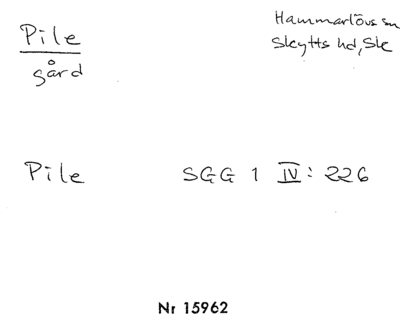 Pile
gård
Hammarlövs sn
Skytts hd, Sk
Pile SGG 1 IV: 226
Nr 15962